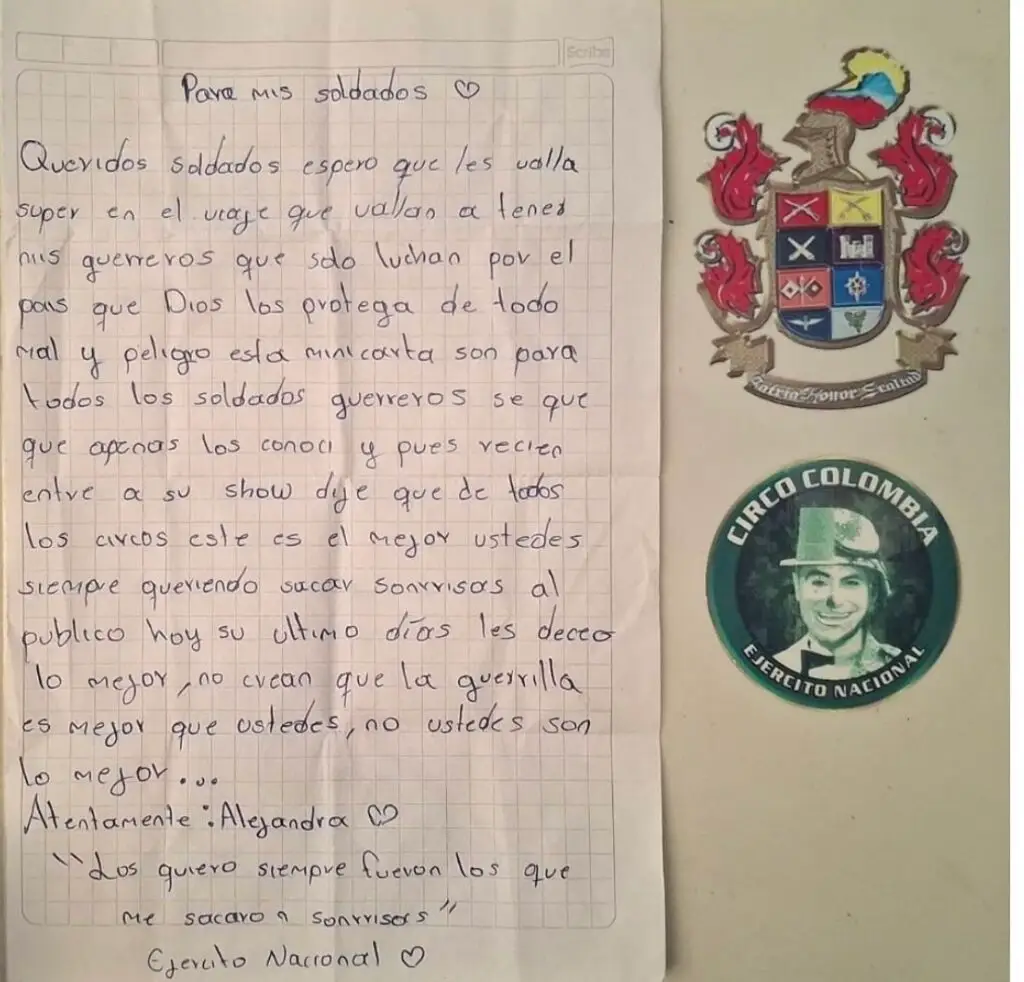 Scribe
Para mis soldados
Queridos soldados espero que les valla
super en el viaje que vallan a tener
mis guerreros que solo luchan por el
pais que Dios los protega de todo
mal y peligro esta minicarta son para
todos los soldados guerreros se que
que apenas los conoci y pues recien
entre a su show dije que de todos
los circos este es el mejor ustedes
siempre queriendo sacar sonrrisas al
publico hoy su ultimo días les deceo
lo mejor, no crean que la guerrilla
es mejor que ustedes, no ustedes son
lo mejor...
Atentamente: Alejandra
"Los quiero siempre fueron los que
me sacaron sonrrisas"
Ejercito Nacional
Patria Honor Lealtad
CIRCO COLOMBIA
EJERCITO NACIONAL